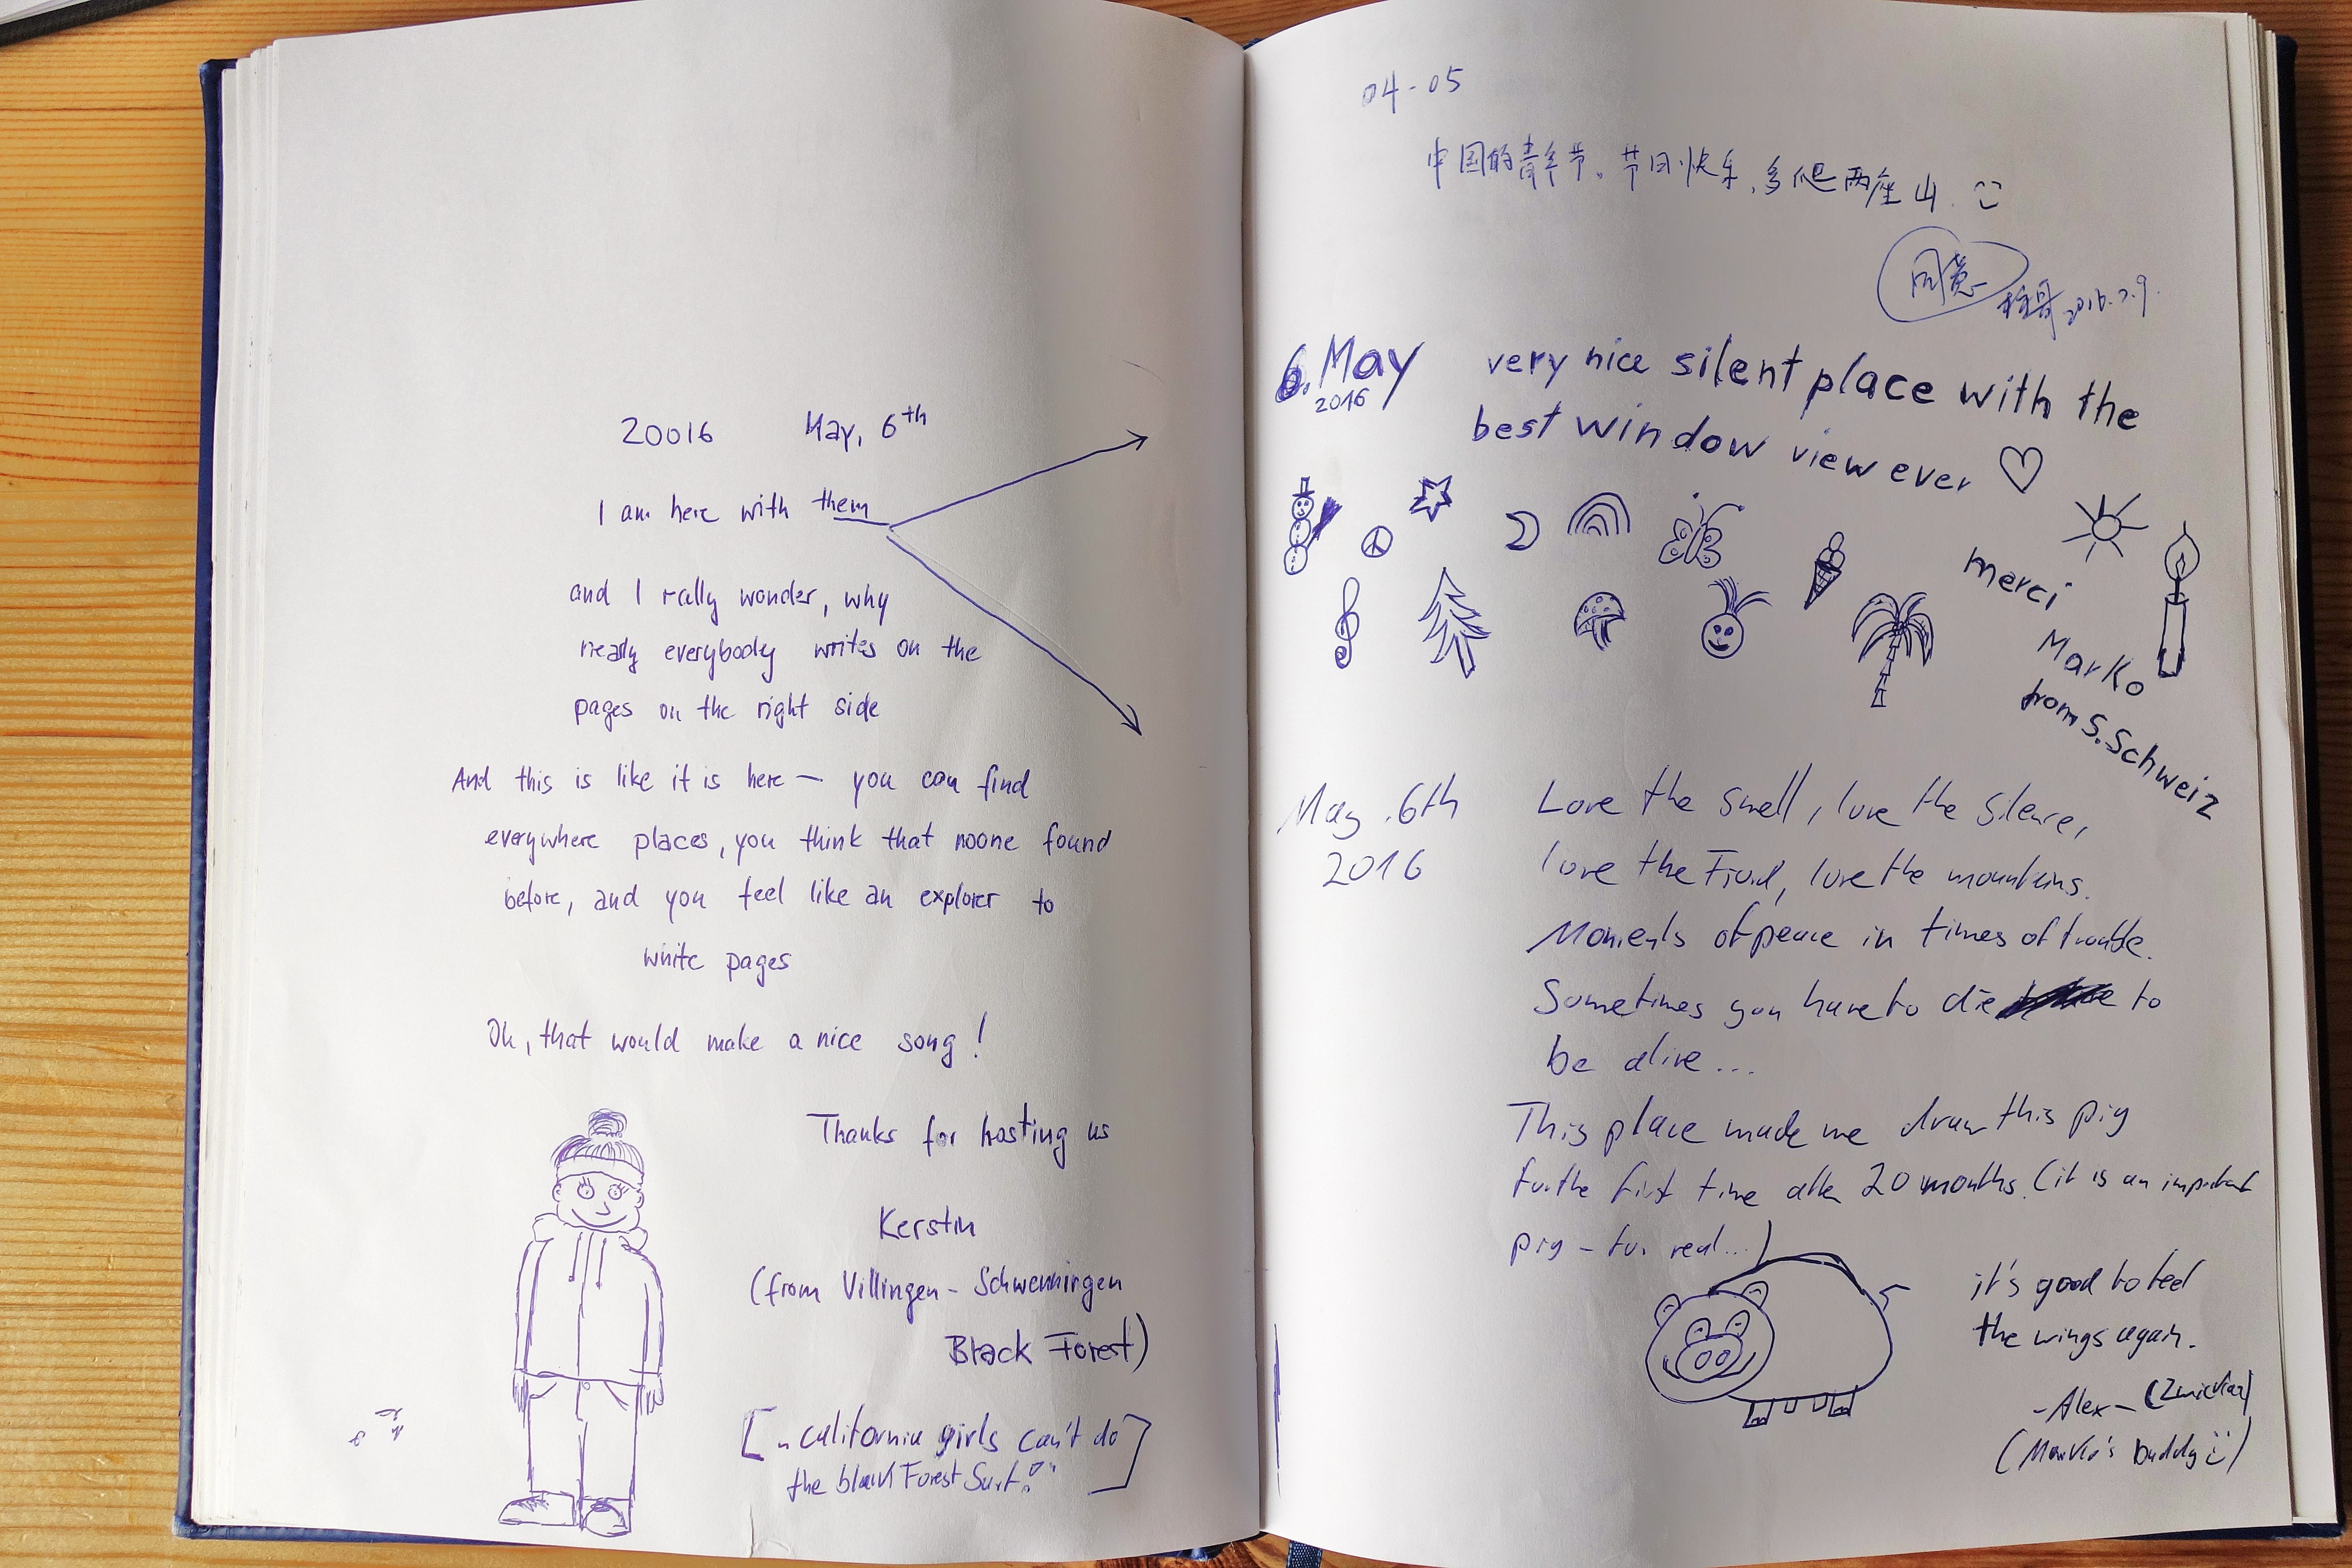 20016 May, 6th
I am here with them
and I really wonder, why
nearly everybody writes on the
pages on the right side
And this is like it is here – you can find
everywhere places, you think that noone found
before, and you feel like an explorer to
white pages
Oh, that would make a nice song!
Thanks for hosting us
Kerstin
(from Villingen-Schwenningen
Black Forest)
[„California girls can't do
the black Forest Surf!"]
04-05
中国的青年节。节日快乐,多爬两座山.
同意
2016.7.9.
6. May very nice silent place with the
2016
best window view ever ♡
merci
Marko
from S. Schweiz
May .6th Love the smell, love the silence,
2016 love the Fjord, love the mountains.
Moments of peace in times of trouble.
Sometimes you have to die to
be alive...
This place made me draw this pig
for the first time after 20 months. (it is an important
pig – for real...)
it's good to feel
the wings again.
- Alex - (Zwickau)
(Marko's buddy :))